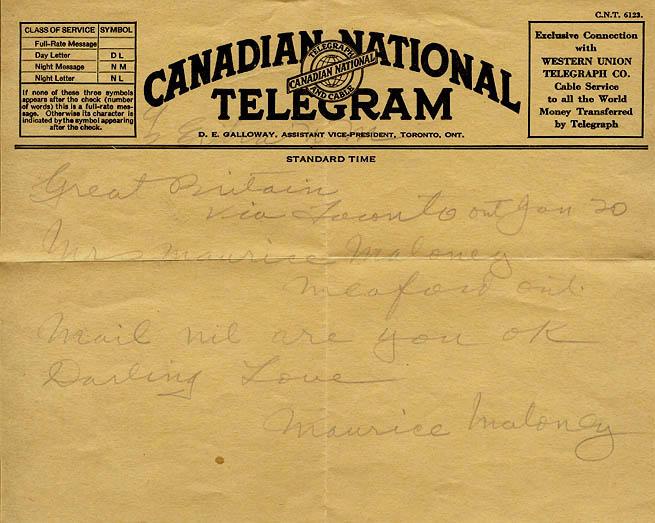 C.N.T. 6123.
CLASS OF SERVICE SYMBOL
Full-Rate Message
Day Letter D L
Night Message N M
Night Letter N L
If none of these three symbols
appears after the check (number
of words) this is a full-rate mes-
sage. Otherwise its character is
indicated by the symbol appearing
after the check.
CANADIAN NATIONAL
TELEGRAPH
CANADIAN NATIONAL
AND CABLE
TELEGRAM
D. E. GALLOWAY, ASSISTANT VICE-PRESIDENT, TORONTO, ONT.
Exclusive Connection
with
WESTERN UNION
TELEGRAPH CO.
Cable Service
to all the World
Money Transferred
by Telegraph
STANDARD TIME
Great Britain
Via Toronto ont Jan 20
Mrs Maurice Maloney
Meaford ont.
Mail nil are you OK
Darling Love
Maurice Maloney